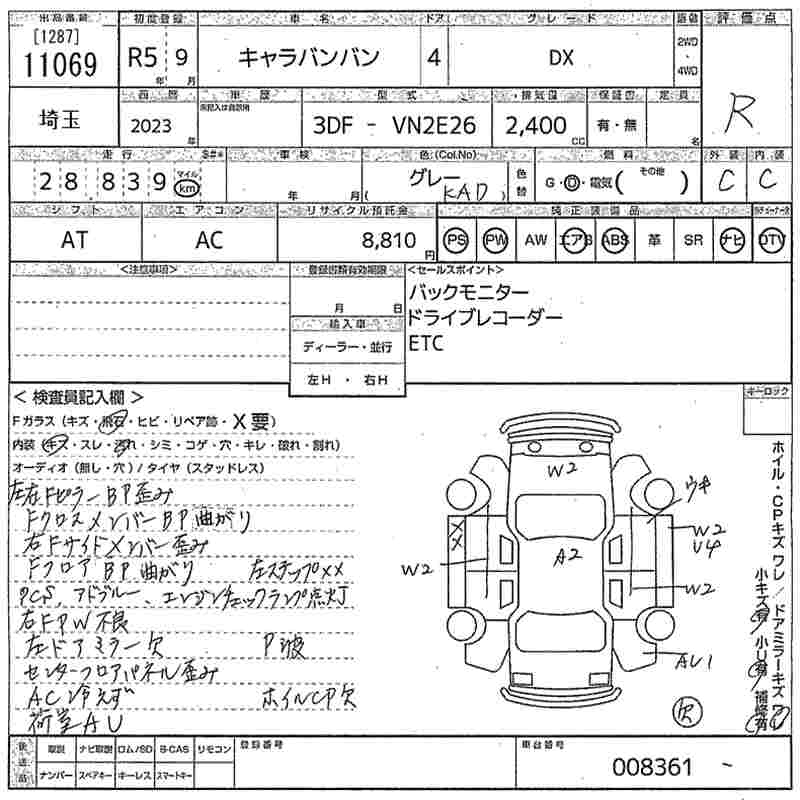 出品番号 初度登録 車名 ドア グレード 駆動 評価点
[1287]
11069 R5 年 9 月 キャラバンバン 4 DX 2WD・4WD R
埼玉 西暦 車歴 型式 排気量 保証書 定員
2023 年 3DF - VN2E26 2,400 CC 有・無 名
走行 車検 色(Col.No) 燃料 外装 内装
28,839 マイル km 年 月( グレー KAD ) 色替 G・D・電気( その他 ) C C
シフト エアコン リサイクル預託金 純正装備品
AT AC 8,810 円 PS PW AW エアB ABS 革 SR ナビ DTV
<注意事項> 登録書類有効期限 <セールスポイント>
月 日 バックモニター
輸入車 ドライブレコーダー
ディーラー・並行 ETC
左H・右H
< 検査員記入欄 > キーロック
Fガラス(キズ・飛石・ヒビ・リペア跡・X要)
内装(キズ・スレ・汚れ・シミ・コゲ・穴・キレ・破れ・割れ)
オーディオ(無し・穴)/タイヤ(スタッドレス)
左右FピラーBP歪み
FクロスメンバーBP曲がり
右Fサイドメンバー歪み
FフロアBP曲がり 左ステップXX
PCS、アドブルー、エンジンチェックランプ点灯
右FPW不良
左ドアミラー欠 P波
センターフロアパネル歪み
AC冷えず ホイルCP欠
荷室AU
W2
ウキ
XX
A2
W2
U4
W2
W2
AU1
欠
ホイル・CPキズ ワレ/ドアミラーキズ ワレ
小キズ有/小U有/補修有
後送品 取説 ナビ取説 ロム/SD B-CAS リモコン 登録番号 車台番号
ナンバー スペアキー キーレス スマートキー 008361 -